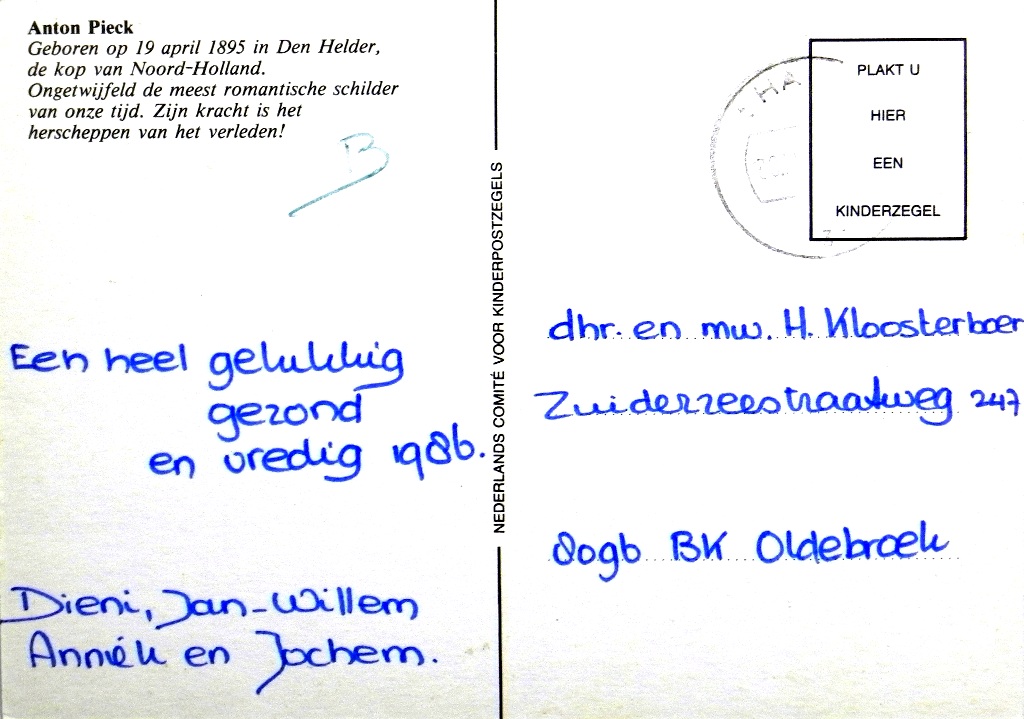 Anton Pieck
Geboren op 19 april 1895 in Den Helder,
de kop van Noord-Holland.
Ongetwijfeld de meest romantische schilder
van onze tijd. Zijn kracht is het
herscheppen van het verleden!
B
Een heel gelukkig
gezond
en vredig 1986.
Dieni, Jan-Willem
Anniék en Jochem.
NEDERLANDS COMITÉ VOOR KINDERPOSTZEGELS
PLAKT U
HIER
EEN
KINDERZEGEL
dhr. en mw. H. Kloosterboer
Zuiderzeestraatweg 247
8096 BK Oldebroek